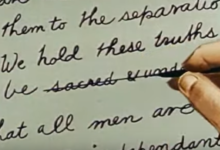 them to the separatio
We hold these truths
be sacred & und
hat all men are
dependant